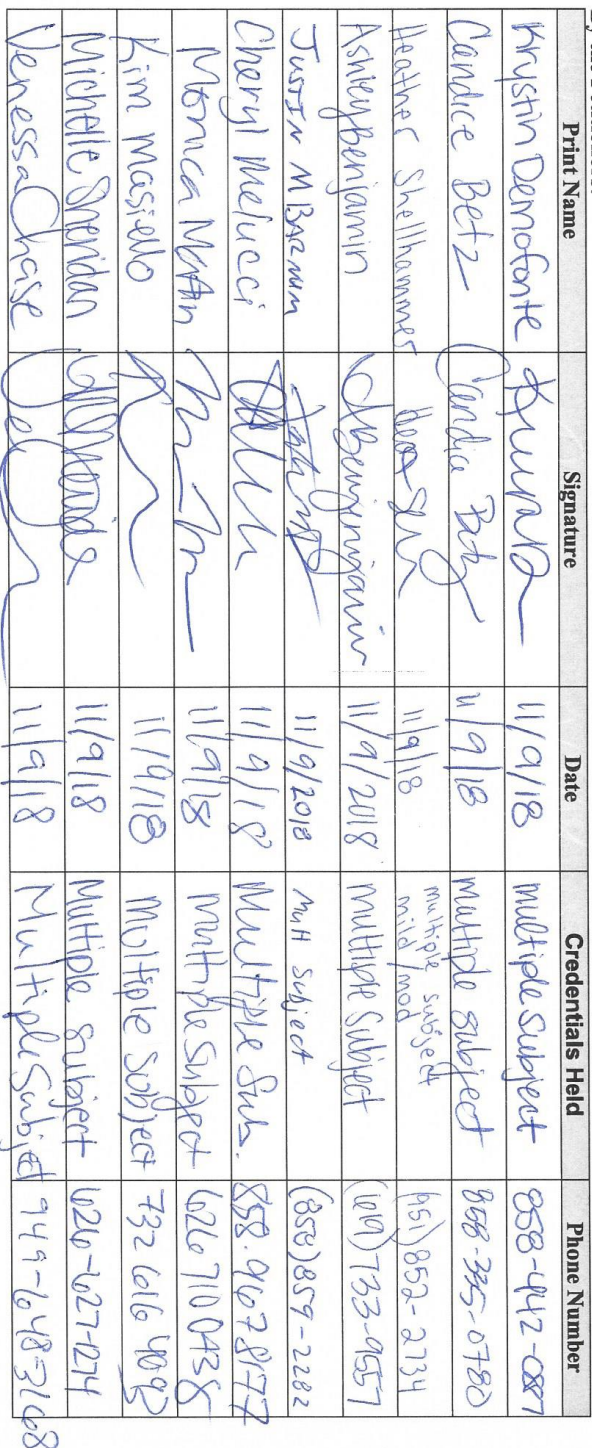 by the Petitioner.
Print Name Signature Date Credentials Held Phone Number
Krystin Demofonte 11/9/18 multiple subject 858-442-0887
Candice Betz Candice Betz 11/9/18 multiple subject 858-335-0780
Heather Shellhammer 11/9/18 multiple subject mild/mod (951) 852-2734
Ashley benjamin Abenjamin 11/9/2018 multiple subject (619) 733-9557
JUSTIN M BARNUM 11/9/2018 Mult Subject (858) 859-2282
Cheryl Melucci 11/9/18 Multiple Sub. 858.967 8177
Monica Martin 11/9/18 Multiple Subject 626 710 0438
Kim Masiello 11/9/18 Multiple Subject 732 616 4093
Michelle Sheridan 11/9/18 Multiple Subject 626-627-1274
Venessa Chase 11/9/18 Multiple Subject 949-648-3168